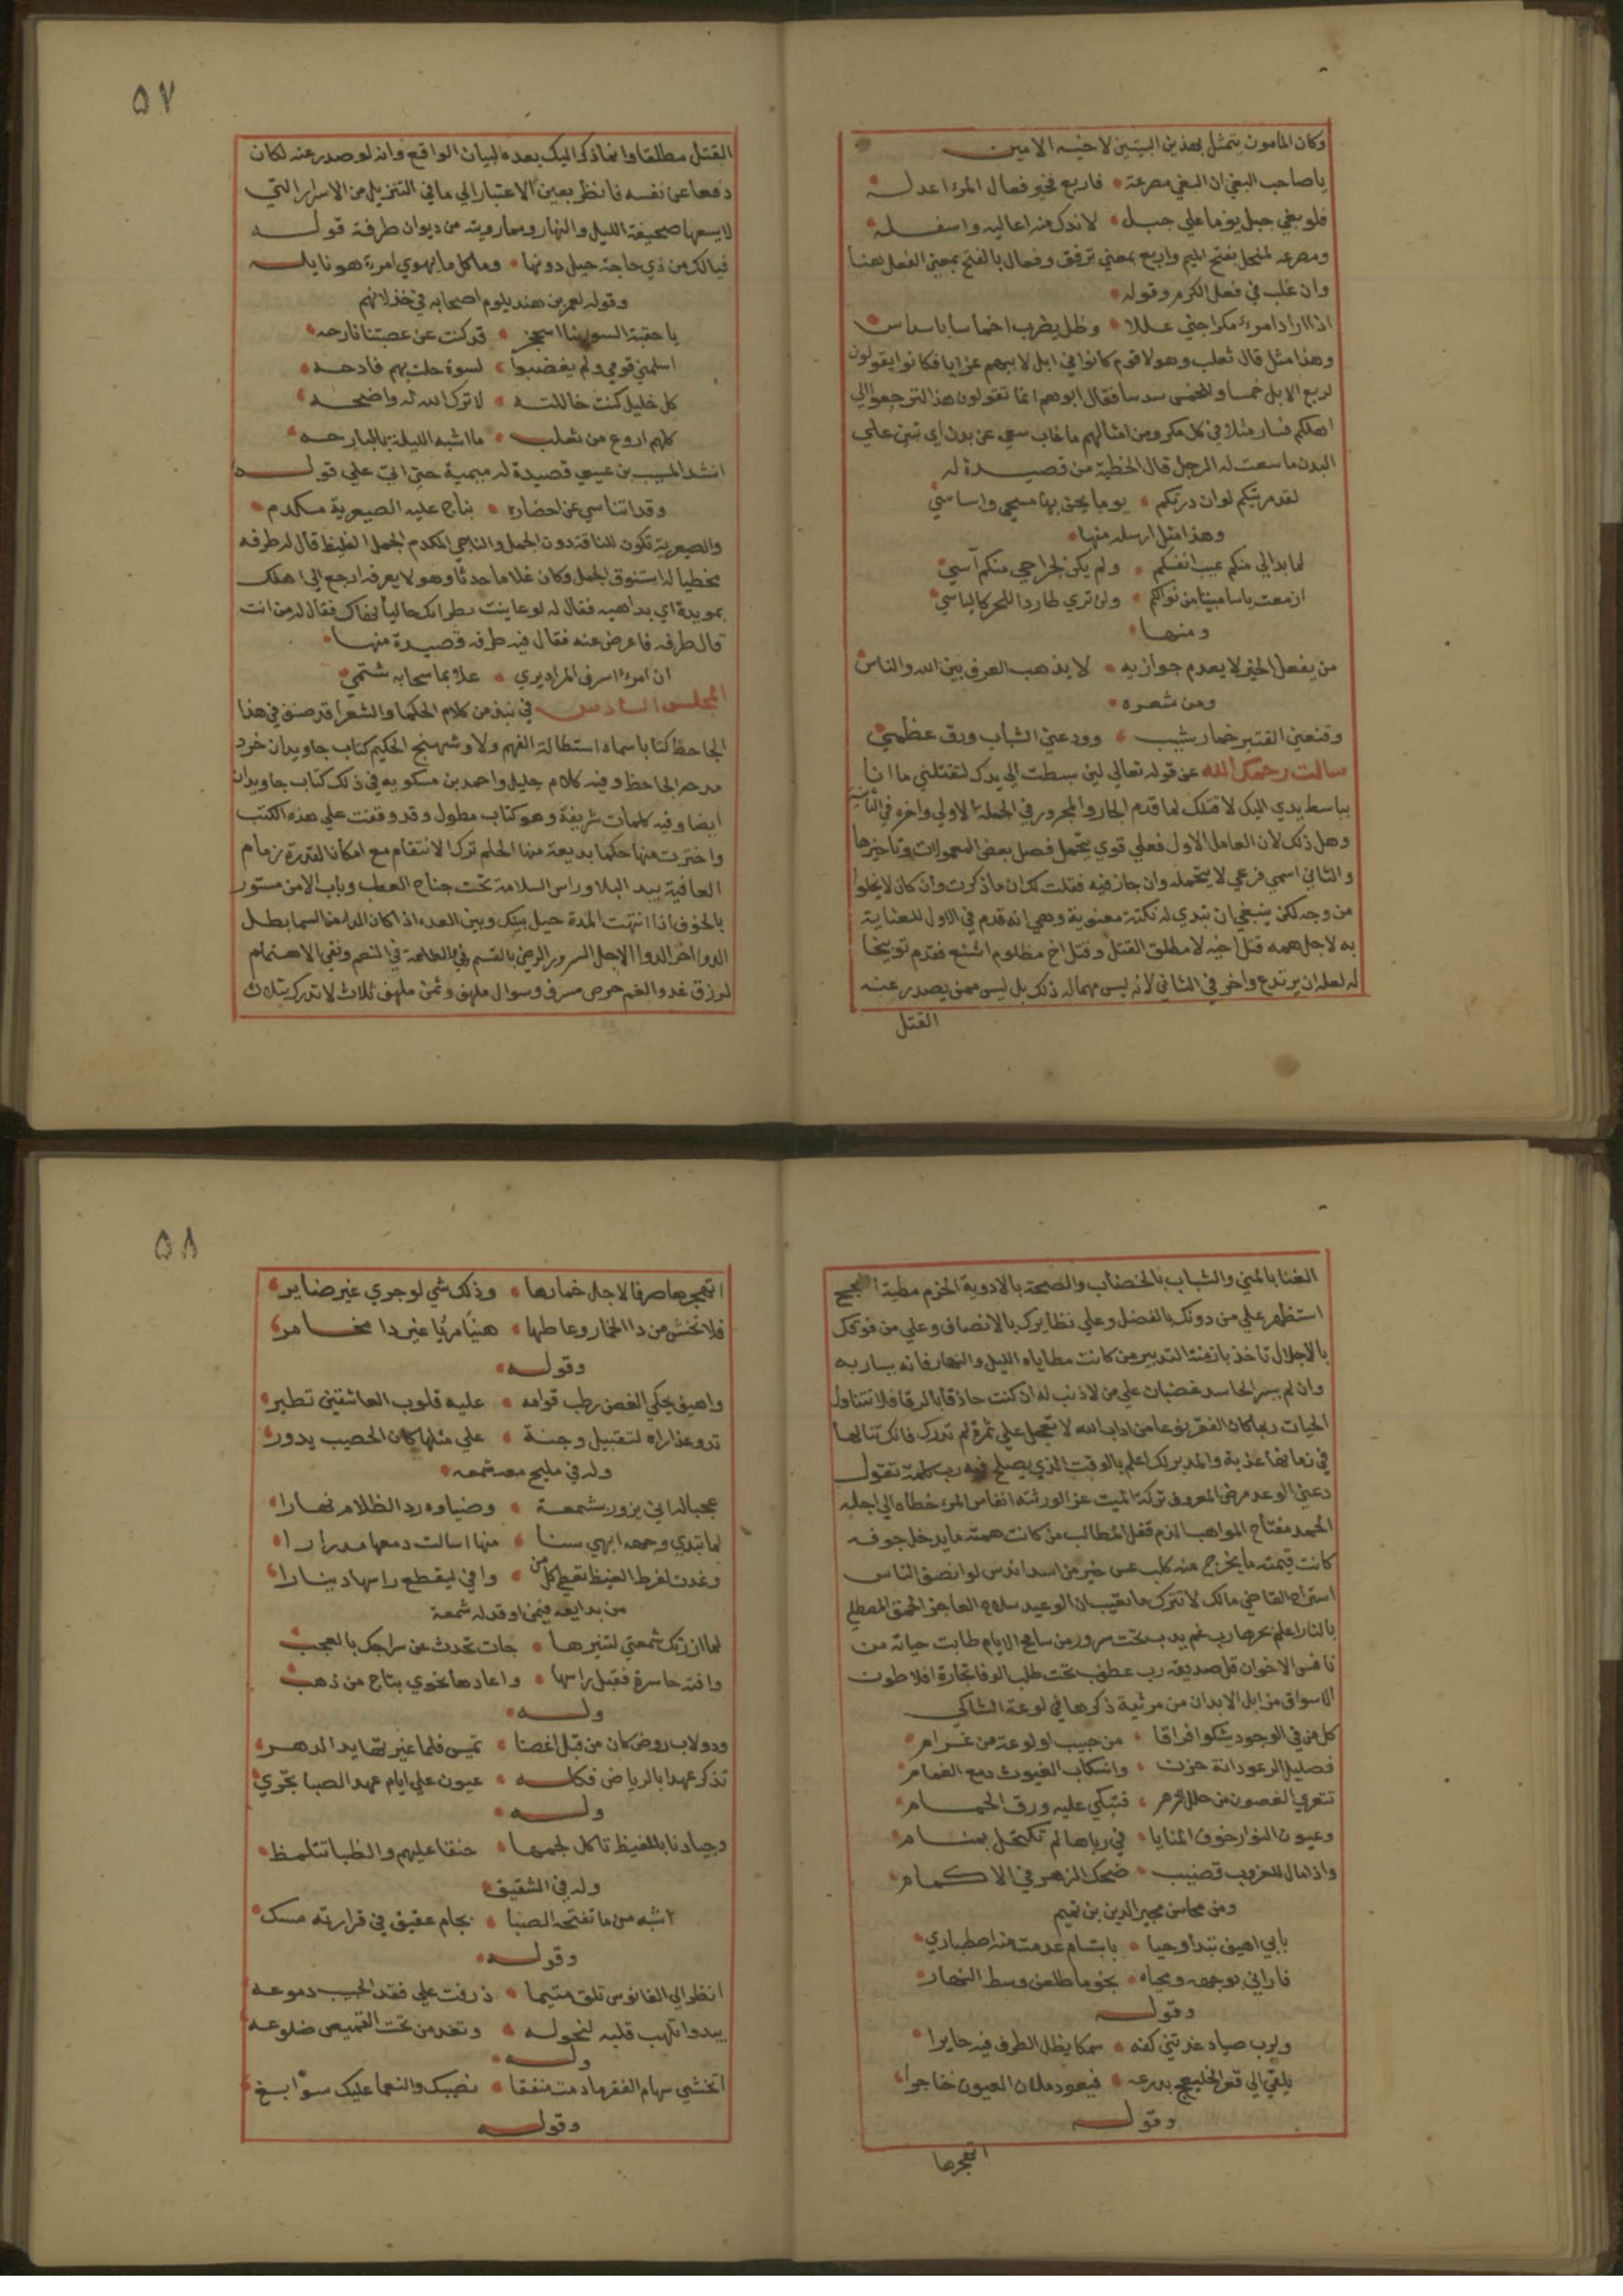 وكان المامون يتمثل بهذين البيتين لاخيه الامين
ياصاحب البغي ان البغي مصرعة فاربع فخير فعال المرء اعدله
فلو بغي جبل يوما علي جبل لاندك منه اعاليه واسفله
ومصرعه لمنحل بفتح الميم واربع بمعني ترفق وفعال بالفتح بمعني الفعل هنا
وان غلب في فعل الكرم وقوله
اذا اراد امرء مكرا جني عللا وظل يضرب اخماسا باسداس
وهذا مثل قال ثعلب وهولا قوم كانوا في ابل لابيهم عزابا فكانوا يقولون
لربع الابل خمسا وللخمس سدسا فقال ابوهم انما تقولون هذا لترجعوا الي
اهلكم فسار مثلا في كل مكر ومن امثالهم
البدن ماسعت له الرجل قال الحطية من قصيدة له
لقد مريتكم لو ان درتكم يوما يجي بها مسحي وابساسي
وهذا مثل ارسله منها
لما بدالي منكم عيب انفسكم ولم يكن لجراحي منكم آسي
ازمعت ياسا مبينا من نوالكم ولن تري طاردا للحر كالياسي
ومنها
من يفعل الخير لا يعدم جوازيه لا يذهب العرف بين الله والناس
ومن شعره
وقنعني القتير خمار شيب وودعني الشباب ورق عظمي
سالت رحمك الله عن قوله تعالي لين بسطت الي يدك لتقتلني ما انا
بباسط يدي اليك لاقتلك لما قدم الجار والمجرور في الجملة الاولي واخره في الثانية
وهل ذلك لان العامل الاول فعلي قوي يحتمل فصل بعض المعمولات وتاخيرها
والثاني اسمي فرعي لا يتحمله وان جاز فيه فقلت لك ان ماذكرت وان كان لا يخلوا
من وجه لكن ينبغي ان تبدي له نكتة معنوية وهي انه قدم في الاول للعناية
به لاجل همه قتل اخيه لا مطلق القتل وقتل اخ مظلوم اشنع فقدم توبيخا
له لعله ان يرتدع واخر في الثاني لانه ليس مهماله ذلك بل ليس ممن يصدر عنه
القتل
٥٧
القتل مطلقا وانما ذكر اليك بعده لبيان الواقع وانه لو صدر عنه لكان
دفعا عن نفسه فانظر بعين الاعتبار الي مافي التنزيل من الاسرار التي
لا يسعها صحيفة الليل والنهار ومما رويته من ديوان طرفة قوله
فيالك من ذي حاجة حيل دونها وماكل مايهوي امرء هو نايله
وقوله لعمر بن هند يلوم اصحابه في خذلانهم
قد كنت عن عصبتنا نازحه
اسلمني قومي ولم يغضبوا لسوة حلت بهم فادحه
كل خليل كنت خاللته لا ترك الله له واضحه
كلهم اروغ من ثعلب ما اشبه الليلة بالبارحه
انشد المسيب بن عيسي قصيدة له ميمية حتي اتي علي قوله
وقد اتناسي عن احضاره بناج عليه الصيعرية مكدم
والصيعرية تكون للناقة دون الجمل والناجي المكدم الجمل الغليظ قال له طرفه
مخطيا له استنوق الجمل وكان غلاما حدثا وهو لا يعرفه ارجع الي اهلك
فقال له من انت
قال طرفه فاعرض عنه فقال فيه طرفه قصيدة منها
ان امرءا سرف الفراد يري عسلا بماء سحابة شتمي
المجلس السادس في نبذ من كلام الحكما والشعرا قد صنف في هذا
الجاحظ كتابا سماه استطالة الفهم ولاوشهنج الحكيم كتاب جاويدان خرد
مدحه الجاحظ وفيه كلام جليل واحمد بن مسكويه في ذلك كتاب جاويدان
ايضا وفيه كلمات شريفة وهو كتاب مطول وقد وقفت علي هذه الكتب
واخترت منها حكما بديعة منها الحلم ترك الانتقام مع امكان القدرة زمام
العافية بيد البلا وراس السلامة تحت جناح العطب وباب الامن مستور
بالخوف اذا انتهت المدة حيل بينك وبين العده اذا كان الدا من السما بطل
الدوا اخر الدوا الاجل السرور الرضي بالقسم وفي الطاعة في النعم ونفي الاهتمام
لرزق غد والغم حرص مسرف وسوال ملهف وثمن ملهف ثلاث لا تدرك بثلاث
الغنا بالمني والشباب بالخضاب والصحة بالادوية الحزم مطية النجح
استظهر علي من دونك بالفضل وعلي نظايرك بالانصاف وعلي من فوقك
بالاجلال تاخذ بازمة التدبير من كانت مطاياه الليل والنهار فانه يسار به
وان لم يسر الحاسد غضبان علي من لا ذنب له ان كنت حاذقا بالرقا فلا تتناول
الحيات ربما كان الفقر نوعا من اداب الله لا تعجل علي ثمرة لم تدرك فانك تنالها
في زمانها عذبة والمدبر لك اعلم بالوقت الذي يصلح فيه رب كلمة تقول
دعني الوعد مرض المعروف تركة الميت عز الورثته انفاس المرء خطاه الي اجله
الحمد مفتاح المواهب الذم قفل المطالب من كانت همته مايدخل جوفه
كانت قيمته مايخرج منه كلب عس خير من اسد اندس لو انصف الناس
استراح القاضي مالك لا تتركه الوعيد سلاح العاجز الحمق المصطلي
بالنار اعلم بحرها رب غم يدب تحت سرور من سامح الايام طابت حياته من
نافس الاخوان قل صديقه رب عطب تحت طلب الوفا تجارة افلاطون
الاسواق مزابل الابدان من مرثية ذكرها في لوعة الشاكي
كل من في الوجود يشكوا فراقا من حبيب اولوعة من غرام
فصليل الرعود انة حزن وانسكاب الغيوث دمع الغمام
تتعري الغصون من حلل الزهر فتبكي عليه ورق الحمام
وعيون النوار خوف المنايا في رباها لم تكتحل بمنام
واذا مال للغروب قضيب ضحك الزهر في الاكمام
ومن محاسن مجير الدين بن تميم
بابي اهيف تبدا وحيا بابتسام عدمت منه اصطباري
فاراني بوجهه ومحياه نجوما طلعن وسط النهار
وقوله
ولرب صياد غدتني كفه سمكا يظل الطرف فيه حايرا
يلقي الي قعر الخليج بدرعه فيعود ملان العيون خناجرا
وقوله
اتهجرها
٥٨
اتهجرها صرفا لاجل خمارها وذلك شي لو جري غير ضاير
فلا تخش من دا الخمار وعاطها هنيا مريا غير دا مخامر
وقوله
واهيف يحكي الغصن رطب قوامه عليه قلوب العاشقين تطير
تدور عذاراه لتقبيل وجنة علي مثلها كان الخصيب يدور
وله في مليح معه شمعه
عجبا له اني يزور بشمعة وضياوه رد الظلام نهارا
لما تبدي وجهه ابهي سنا منها اسالت دمعها مدرارا
وغدت لفرط الغيظ تعطي كل من وافي ليقطع راسها دينارا
من بدايعه فيمن اوقد له شمعة
لما ازرتك شمعتي لتنيرها جات تحدث عن سراجك بالعجب
وافته حاسرة فقبل راسها واعادها نحوي بتاج من ذهب
وله
ودولاب روض كان من قبل اغصنا تميس فلما غيرتها يد الدهر
تذكر عهدا بالرياض فكله عيون علي ايام عهد الصبا تجري
وله
وجيادنا بالغيظ تاكل لجمها حنقا عليهم والظبا تتلمظ
وله في الشقيق
اشبه من ما تفتحه الصبا بجام عقيق في قرارته مسك
وقوله
انظر الي الفانوس تلق متيما ذرفت علي فقد الحبيب دموعه
يبدوا تلهب قلبه لنحوله وتعد من تحت القميص ضلوعه
وله
اتخشي سهام الفقر مادمت منفقا نصيبك والنعما عليك سوابغ
وقوله